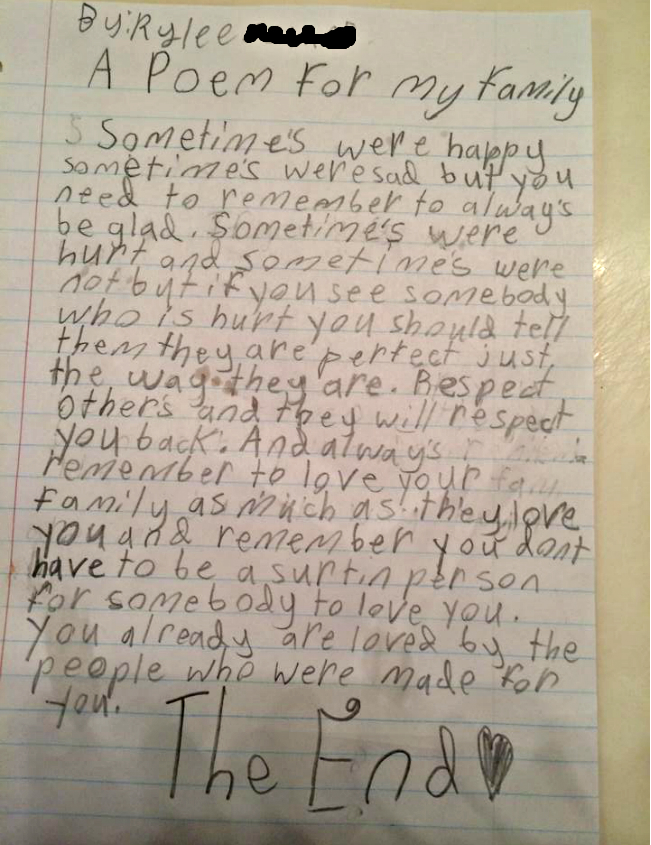 By: Rylee
A Poem for my family
Sometime's were happy
sometime's were sad but you
need to remember to alway's
be glad. Sometime's were
hurt and sometime's were
not but if you see somebody
who is hurt you should tell
them they are perfect just
the way they are. Respect
other's and they will respect
you back. And alway's
remember to love your
family as much as they love
you and remember you dont
have to be a surtin person
for somebody to love you.
You already are loved by the
people who were made for
you.
The End